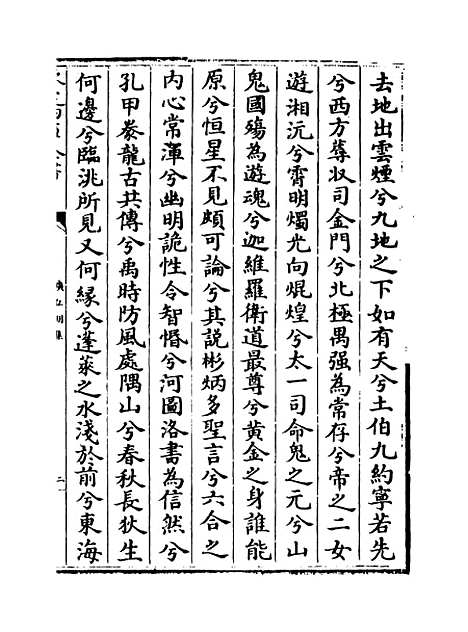 去地出雲煙兮九地之下如有天兮土伯九約寧若先
兮西方蓐收司金門兮北極禺强為常存兮帝之二女
遊湘沅兮霄明燭光向焜煌兮太一司命鬼之元兮山
鬼國殤為遊魂兮迦維羅衛道最尊兮黄金之身誰能
原兮恒星不見頗可論兮其説彬炳多聖言兮六合之
内心常渾兮幽明詭性令智惛兮河圖洛書為信然兮
孔甲豢龍古共傳兮禹時防風處隅山兮春秋長狄生
何邊兮臨洮所見又何緣兮蓬萊之水淺於前兮東海
廣弘明集